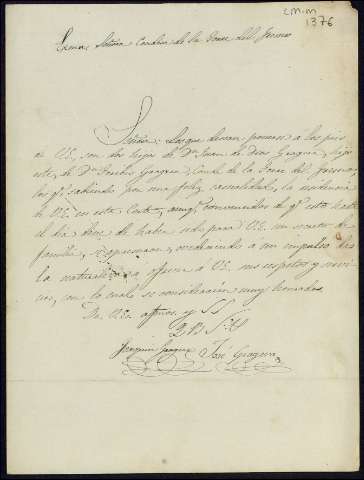 C.M.M
1376
Exma. Señora Condesa de la Torre del Fresno
Señora: Los que desean ponerse a los pies
de V.E. son dos hijos de Dn. Juan de Dios Gragera, hijo
este, de Dn. Conde de la Torre del Fresno,
los qs. sabiendo por una feliz casualidad, la
de V.E. en esta Corte, aunqe. convencidos de qe. esta
el dia deve de haber sido para V.E. un
familia, a un impulso de
la naturaleza ofrecen á V.E. sus respetos y servi
cios, con lo cual se consideraran muy honrados.
De V.E. affmos. y SS
Q.B.S.P.
Joaquin Gragera José Gragera